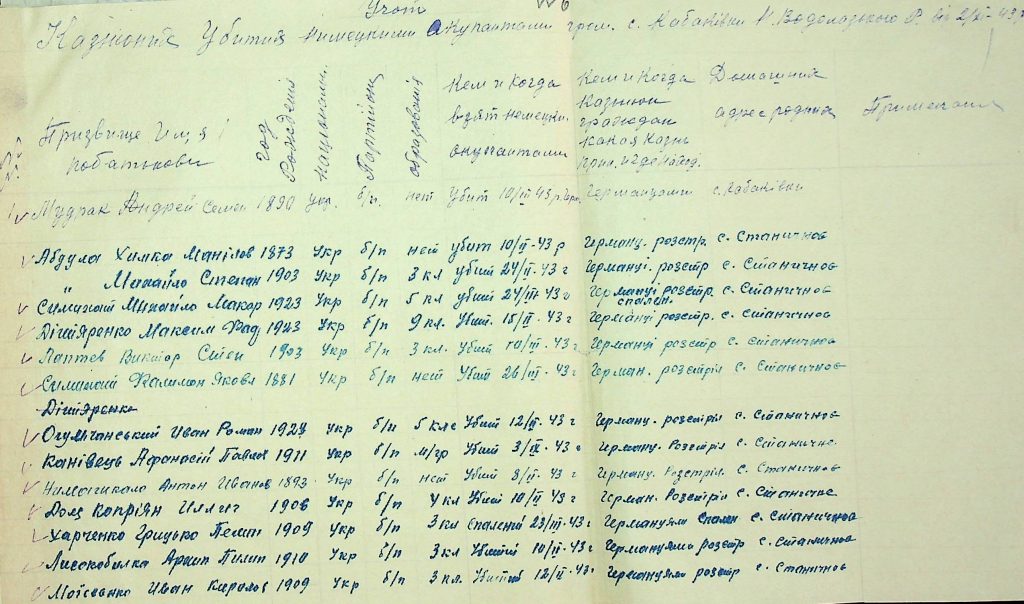 Учот
Казнених Убитих Нимецкими Окупантами гром. с. Кабаківки Н. Водолазького Р. від 2/XI-43 р
Призвище Им,я і побатькови
год Рождения
Национальн.
Партійн
образования
Кем и когда взят немецки. окупантами
Кем и Когда Казнион граждан какая Казнь прин. и где наход.
Домашний адрес родних
Примечания
Мудрак Андрей Семен 1890 Укр. б/п. нет Убит 10/III 43 р. Германцами с. Кабаківки
Абдула Химка Манілов 1873 Укр б/п нет убит 10/II-43 р Герману. розстр. с. Станичное
" Михайло Степан 1903 Укр б/п 3 кл убит 24/II-43 г Германці. розстр с. Станичное
Михайло Макар 1923 Укр б/п 5 кл убит 24/III-43 г Германці розстр. спален. с. Станичное
Дігтяренко Максим Фад 1923 Укр б/п 9 кл. Убит. 15/II-43 г Германці розстр. с. Станичное
Лаптев Виктор Степ 1903 Укр б/п 3 кл. Убит 10/III-43 г Германці розстр с. Станичное
Филимон Яковл 1881 Укр б/п нет Убит 26/III-43 г Герман. розстріл с. Станичное
Дігтяренко
Огульчанський Иван Роман Укр б/п 5 клс Убит 12/III-43 г Герману. розстріл с. Станичное
Канівець Афанасій Павлов 1911 Укр б/п м/гр Убит 3/IX-43 г Герману. Розстріл с. Станичне.
Антон Иванов 1893. Укр б/п нет Убит 8/II-43 г Герману. Розстріл. с. Станичное
Копріян Иллич 1906 Укр б/п 4 кл Убит 10/II 43 г Герман. Розстріл с. Станичне
Харченко Грицько Пелип 1909 Укр б/п 3 кл Спалений 23/III-43 г Германцями спален с. Станичное
Архип Пилип 1910 Укр б/п 3 кл. Убитий 10/II-43 г Германцями розстр с. Станичное
Моісеенко Иван Кирилов 1909 Укр б/п 3 кл. Убитий 12/II-43 г Германцями розстр с. Станичное